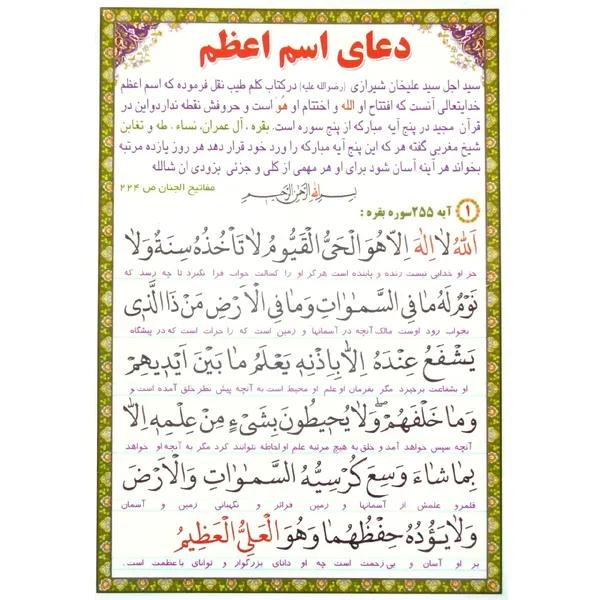 دعای اسم اعظم
سید اجل سید علیخان شیرازی (رضوالله علیه) درکتاب کلم طیب نقل فرموده که اسم اعظم
خدایتعالی آنست که افتتاح او الله و اختتام او هُوَ است و حروفش نقطه نداردواین در
قرآن مجید در پنج آیه مبارکه از پنج سوره است. بقره ، آل عمران، نساء ، طه و تغابن
شیخ مغربی گفته هر که این پنج آیه مبارکه را ورد خود قرار دهد هر روز یازده مرتبه
بخواند هر آینه آسان شود برای او هر مهمی از کلی و جزئی بزودی ان شالله
مفاتیح الجنان ص ۲۲۴
بسم الله الرحمن الرحیم
۱ آیه ۲۵۵سوره بقره :
اَللّٰهُ لَا اِلٰهَ اِلَّا هُوَ الْحَیُّ الْقَیُّومُ لَا تَأْخُذُهُ سِنَةٌ وَلَا
جز او خدایی نیست زنده و پاینده است هرگز او را کسالت خواب فرا نگیرد تا چه رسد که
نَوْمٌ لَهُ مَا فِی السَّمٰوَاتِ وَمَا فِی الْاَرْضِ مَنْ ذَا الَّذِی
بخواب رود اوست مالک آنچه در آسمانها و زمین است که را جرات است که در پیشگاه
یَشْفَعُ عِنْدَهُ اِلَّا بِاِذْنِهِ یَعْلَمُ مَا بَیْنَ اَیْدِیهِمْ
او بشفاعت برخیزد مگر بفرمان او علم او محیط است به آنچه پیش نظر خلق آمده است و
وَمَا خَلْفَهُمْ وَلَا یُحِیطُونَ بِشَیْءٍ مِنْ عِلْمِهِ اِلَّا
آنچه سپس خواهد آمد و خلق به هیچ مرتبه علم او احاطه نتوانند کرد مگر به آنچه او خواهد
بِمَا شَاءَ وَسِعَ کُرْسِیُّهُ السَّمٰوَاتِ وَالْاَرْضَ
قلمرو علمش از آسمانها و زمین فراتر و نگهبانی زمین و آسمان
وَلَا یَؤُدُهُ حِفْظُهُمَا وَهُوَ الْعَلِیُّ الْعَظِیمُ
بر او آسان و بی زحمت است چه او دانای بزرگوار و توانای باعظمت است .